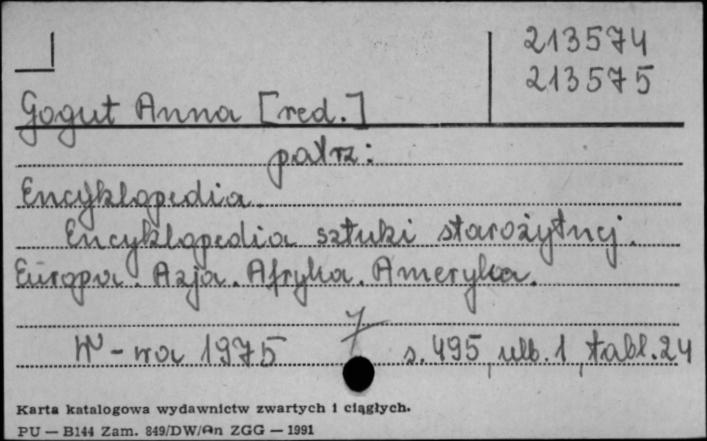 213574
213575
Gogut Anna [red.]
patrz:
Encyklopedia.
Encyklopedia sztuki starożytnej.
Europa. Azja. Afryka. Ameryka.
7
W-wa 1975 s. 495, ulb. 1, tabl. 24
Karta katalogowa wydawnictw zwartych i ciągłych.
PU — B144 Zam. 849/DW/An ZGG — 1991